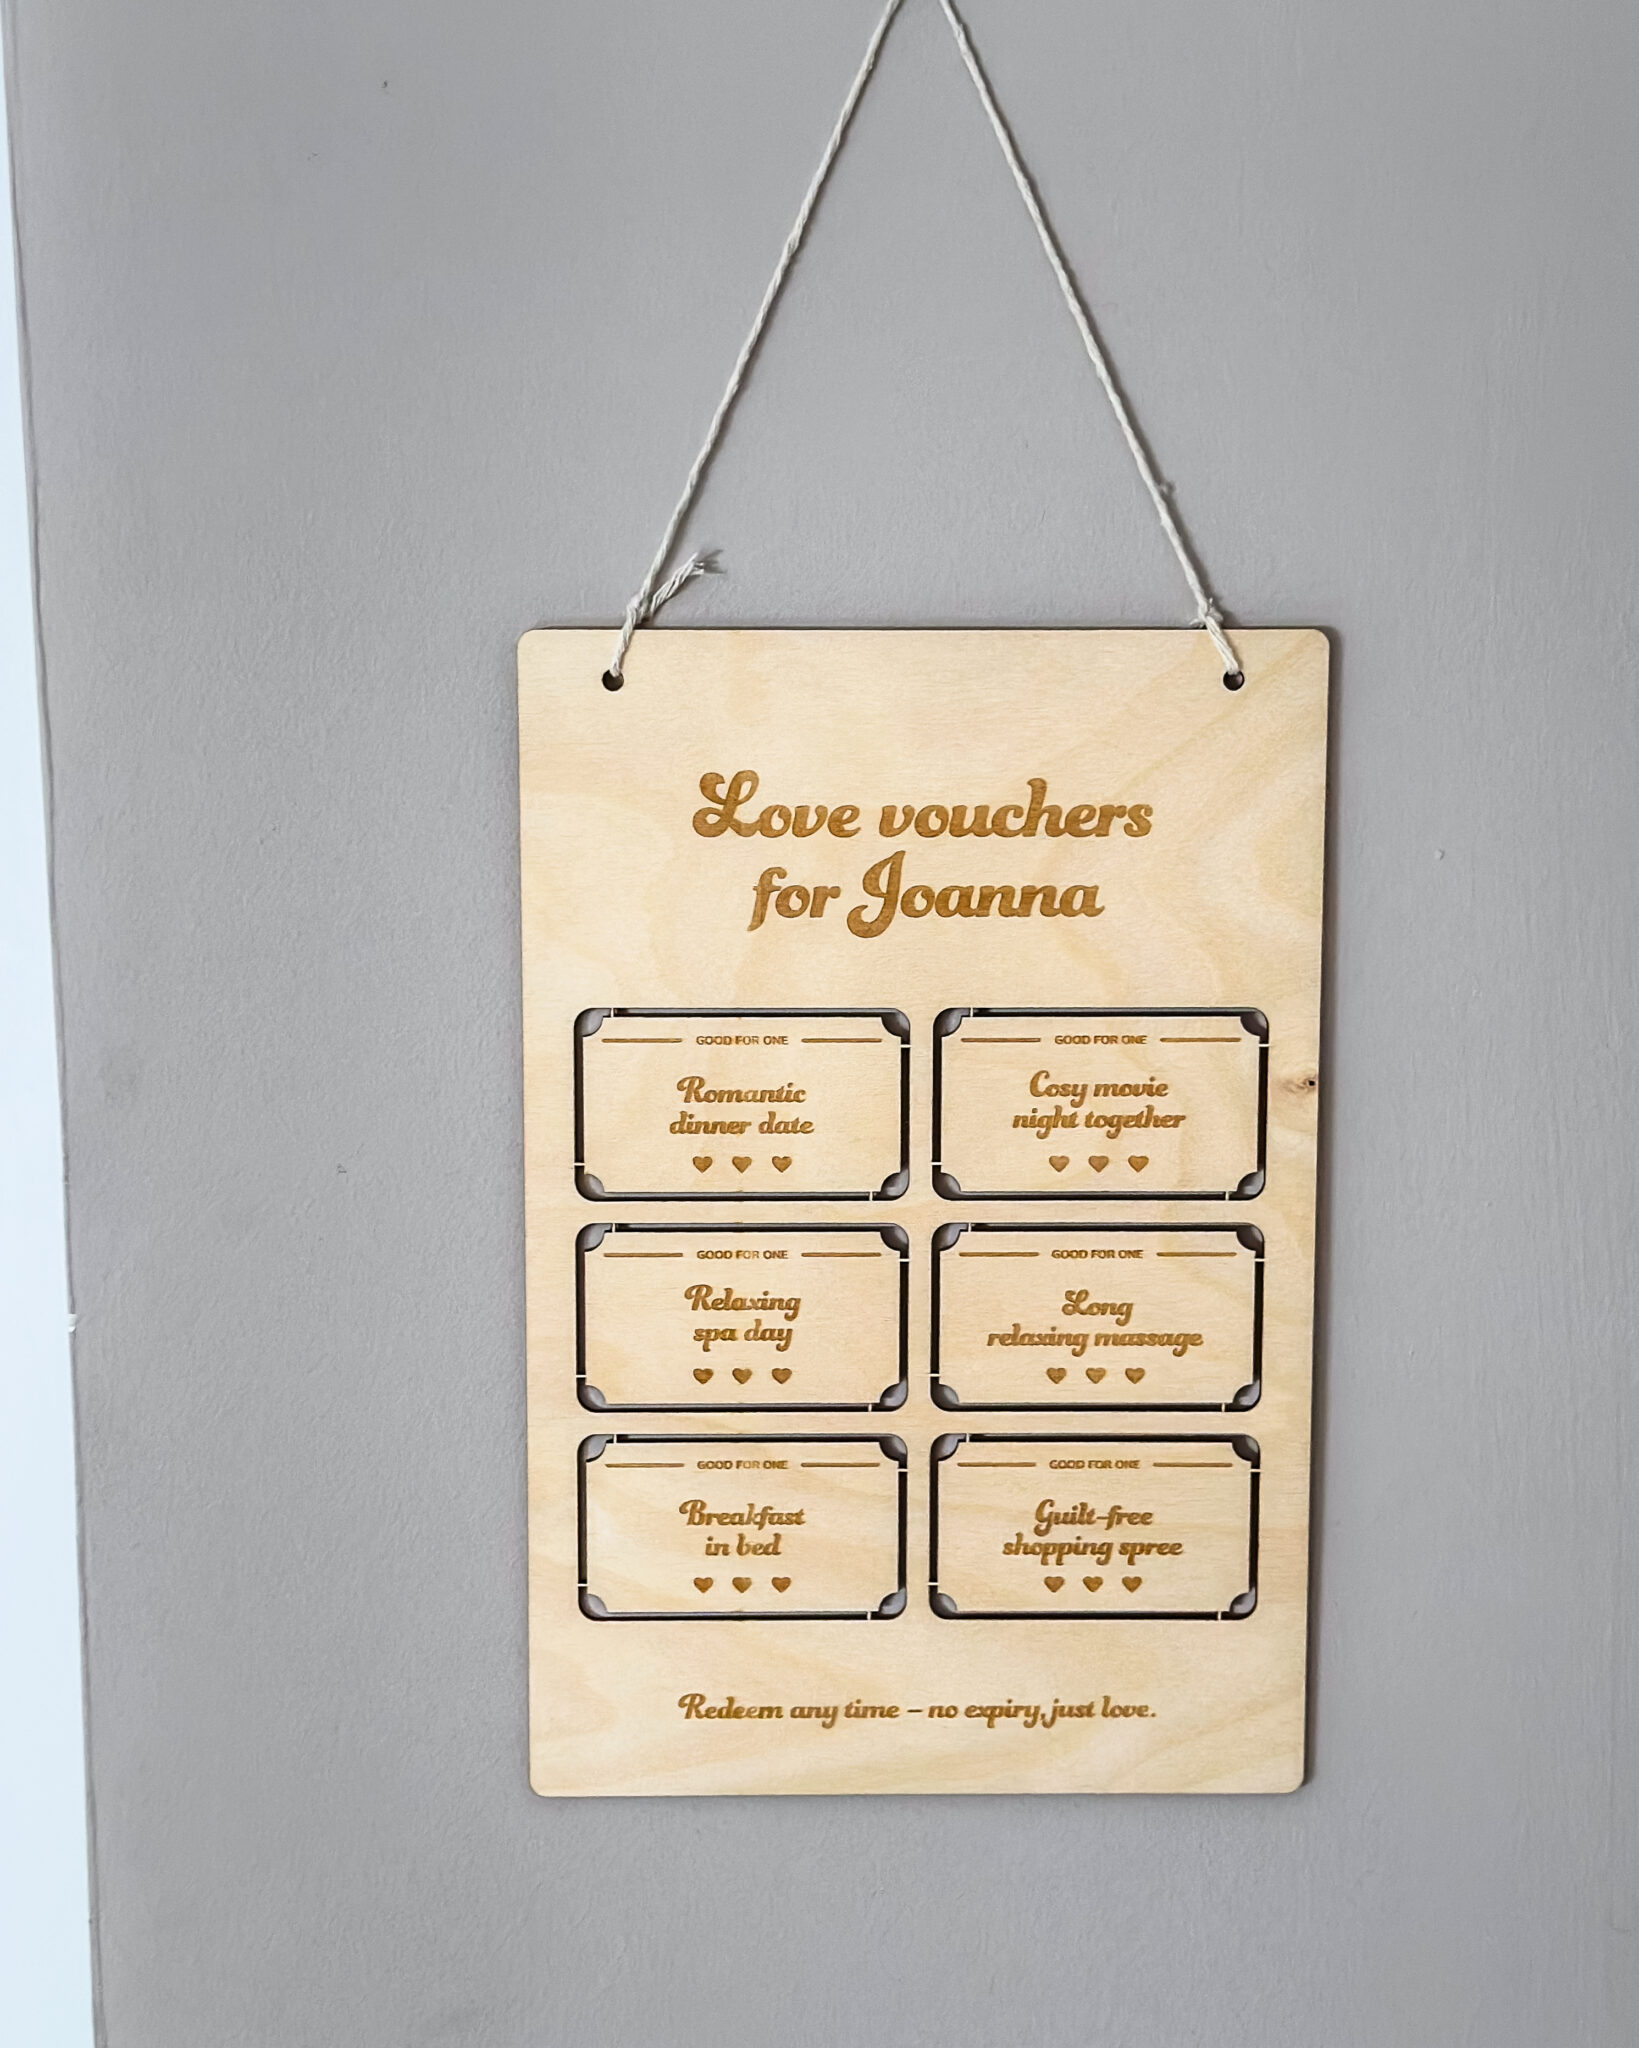 Love vouchers
for Joanna
GOOD FOR ONE
Romantic
dinner date
GOOD FOR ONE
Cosy movie
night together
GOOD FOR ONE
Relaxing
spa day
GOOD FOR ONE
Long
relaxing massage
GOOD FOR ONE
Breakfast
in bed
GOOD FOR ONE
Guilt-free
shopping spree
Redeem any time – no expiry, just love.